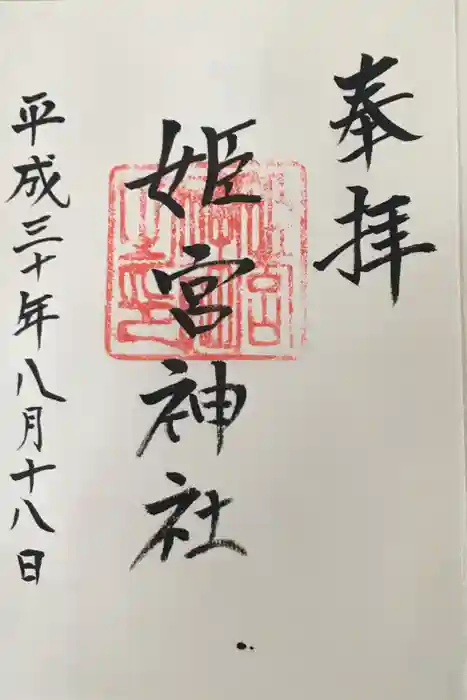 奉拝
姫宮神社
平成三十年八月十八日